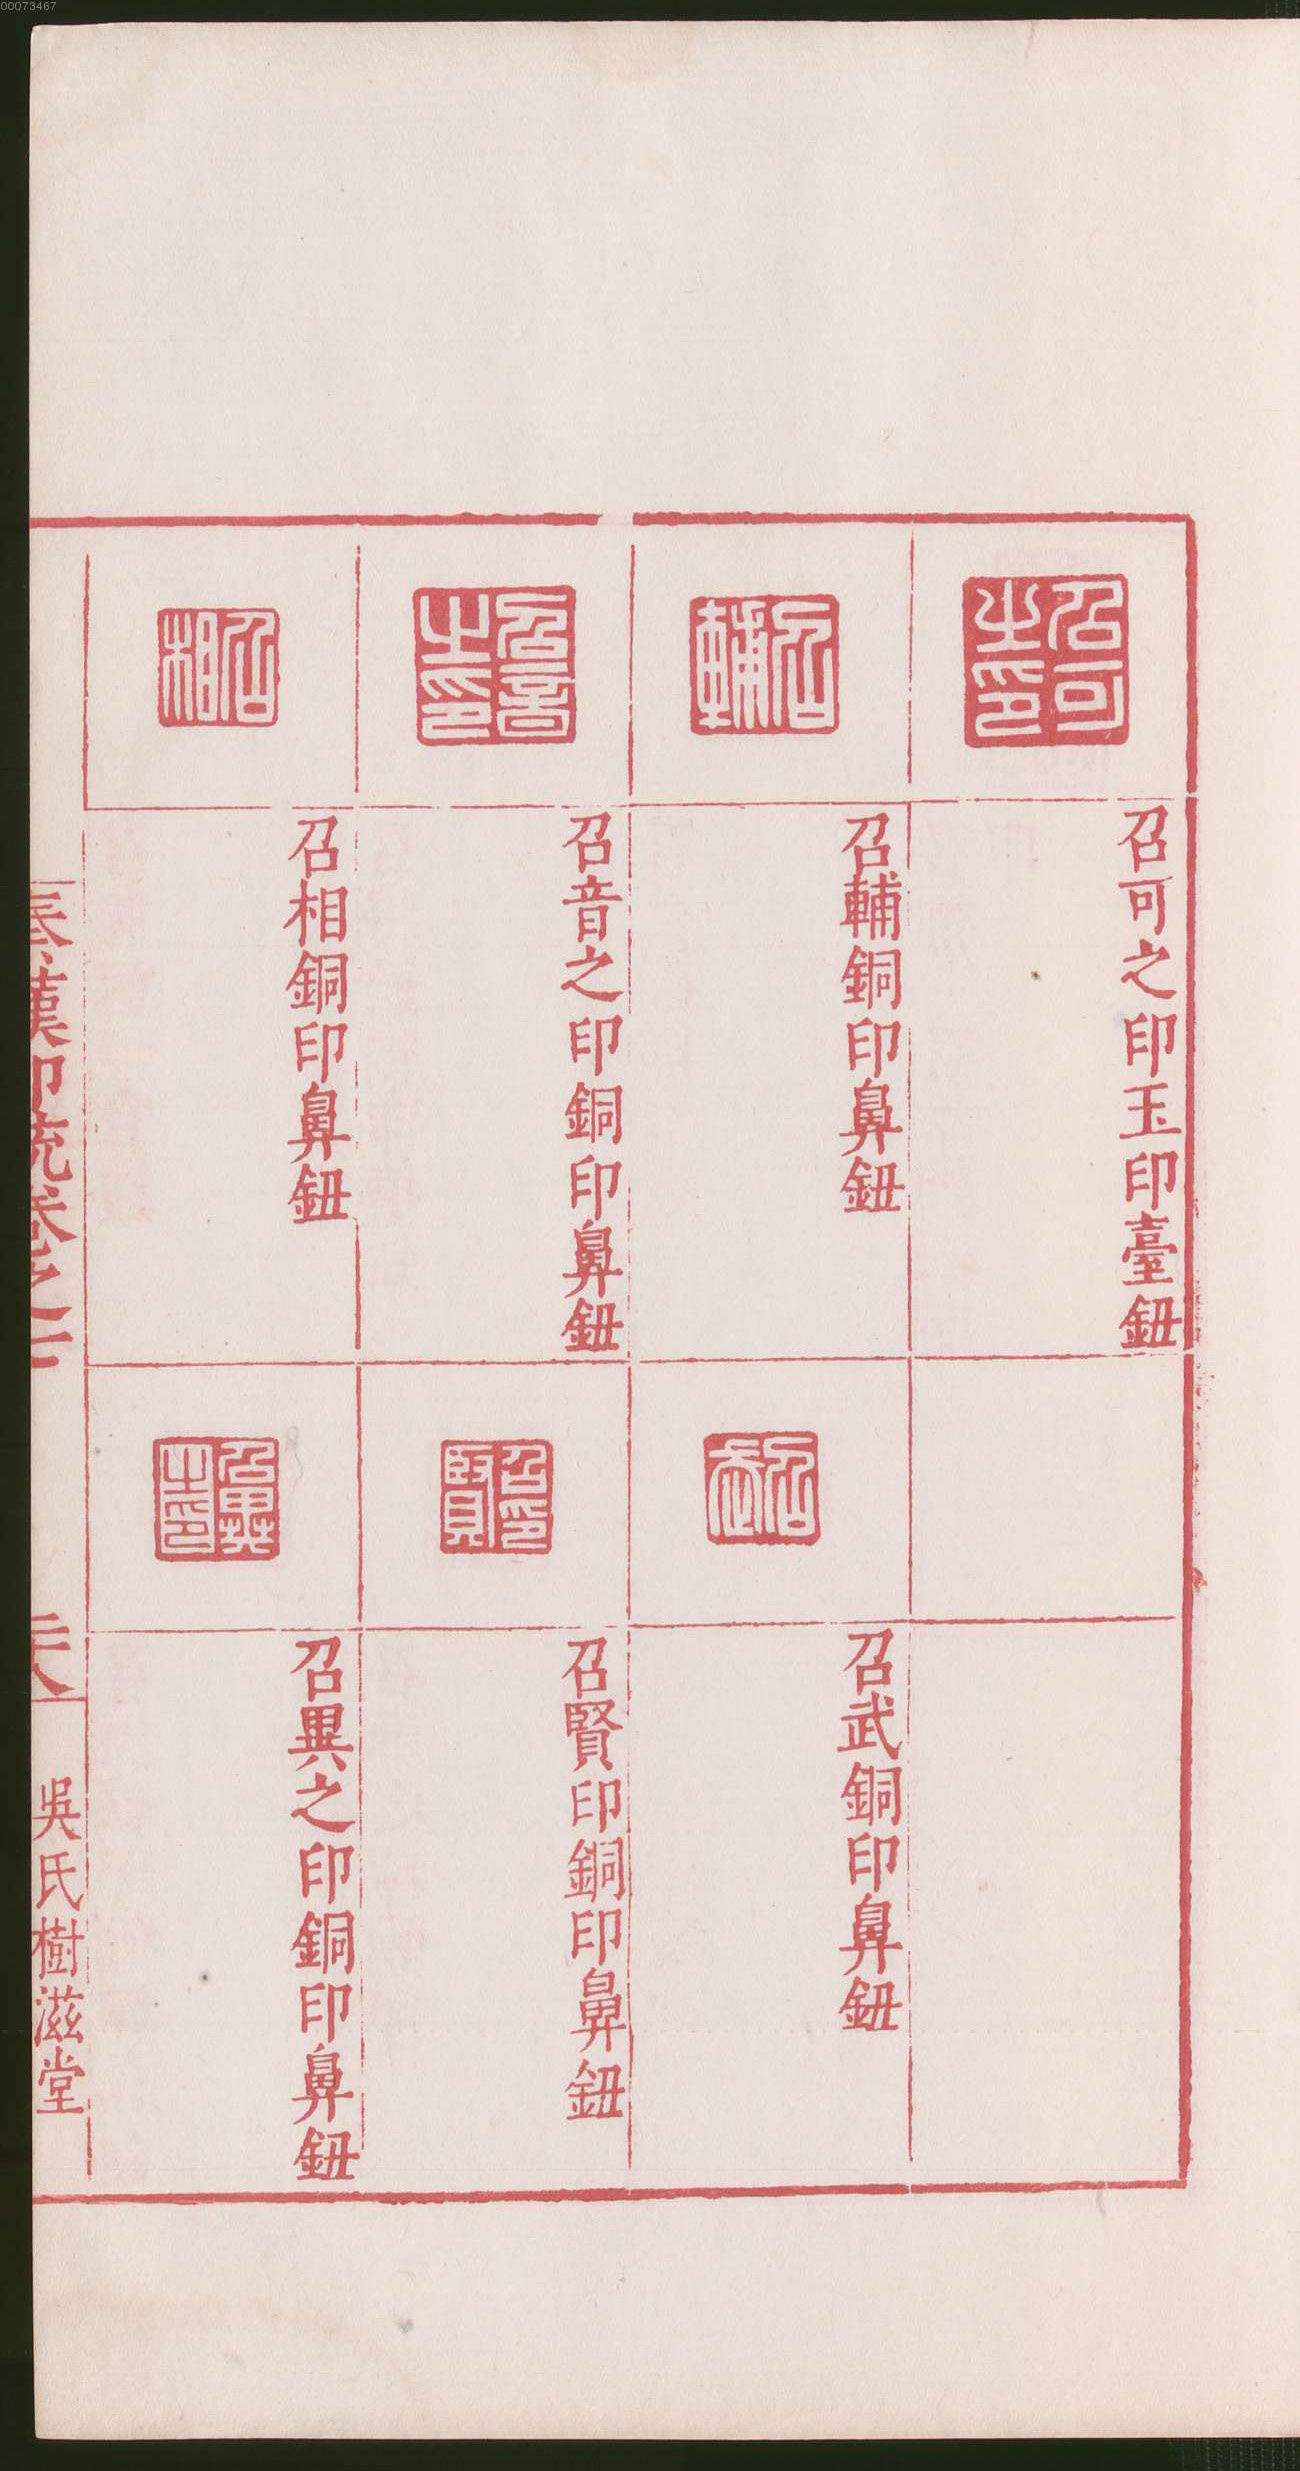 00073467
召可之印
召可之印玉印臺鈕
召輔
召輔銅印鼻鈕
召武
召武銅印鼻鈕
召音之印
召音之印銅印鼻鈕
召賢印
召賢印銅印鼻鈕
召相
召相銅印鼻鈕
召異之印
召異之印銅印鼻鈕
秦漢印統卷之二
二十八
吳氏樹滋堂